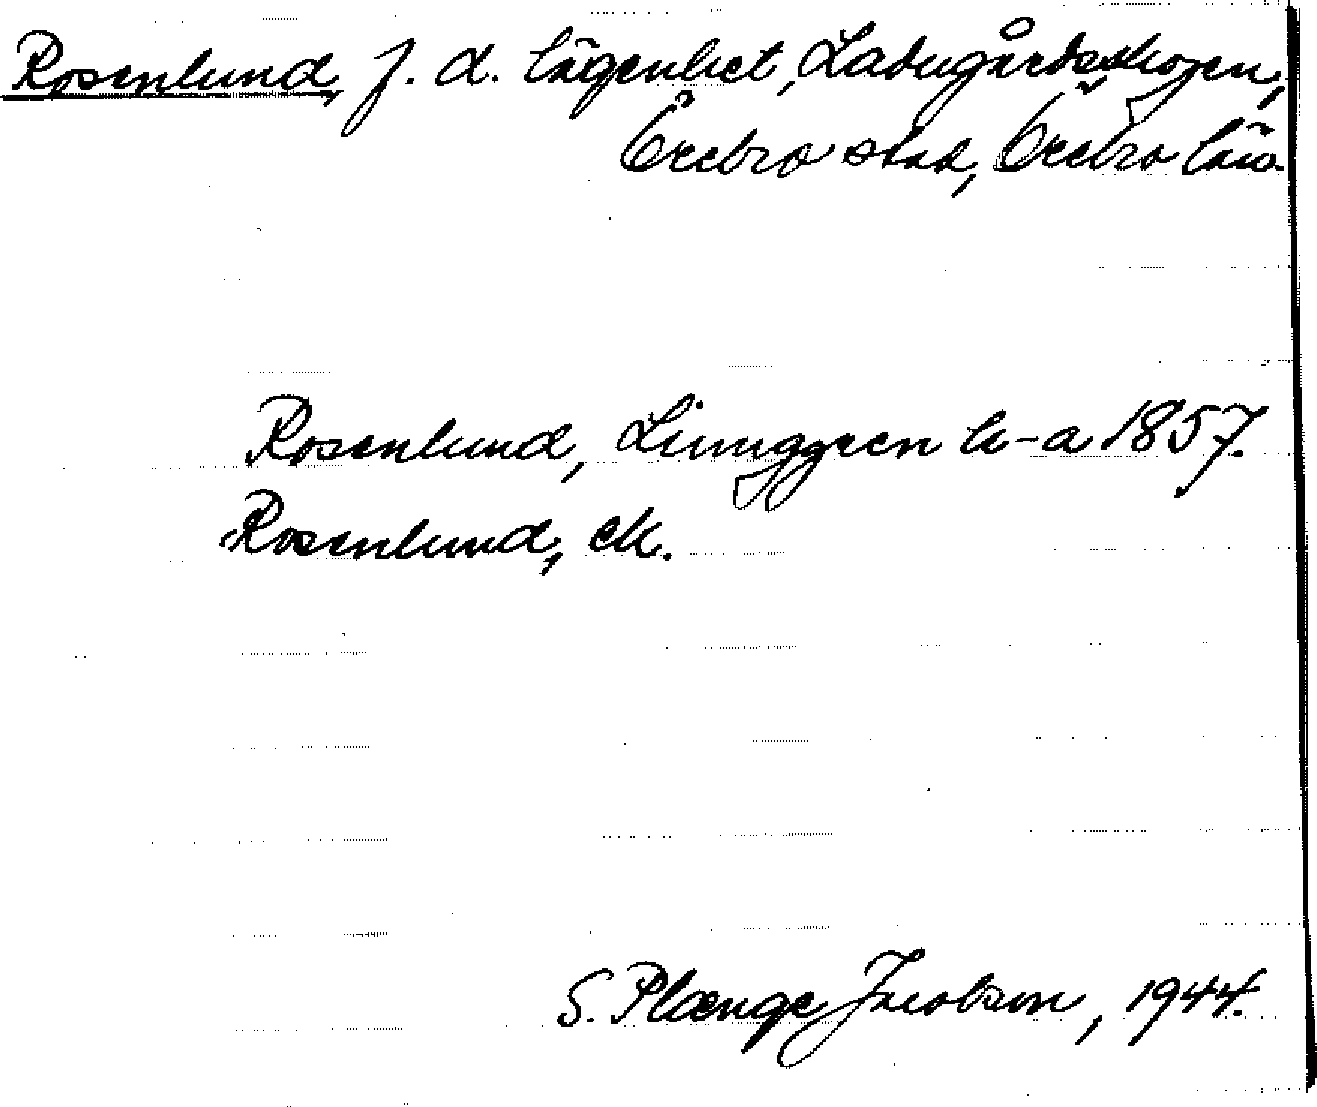 Rosenlund, f. d. lägenhet, Ladugårdsskogen,
Örebro stad, Örebro län.
Rosenlund, Ljunggren h-a 1857.
Rosenlund, ek.
S. Plænge Jacobson, 1944.